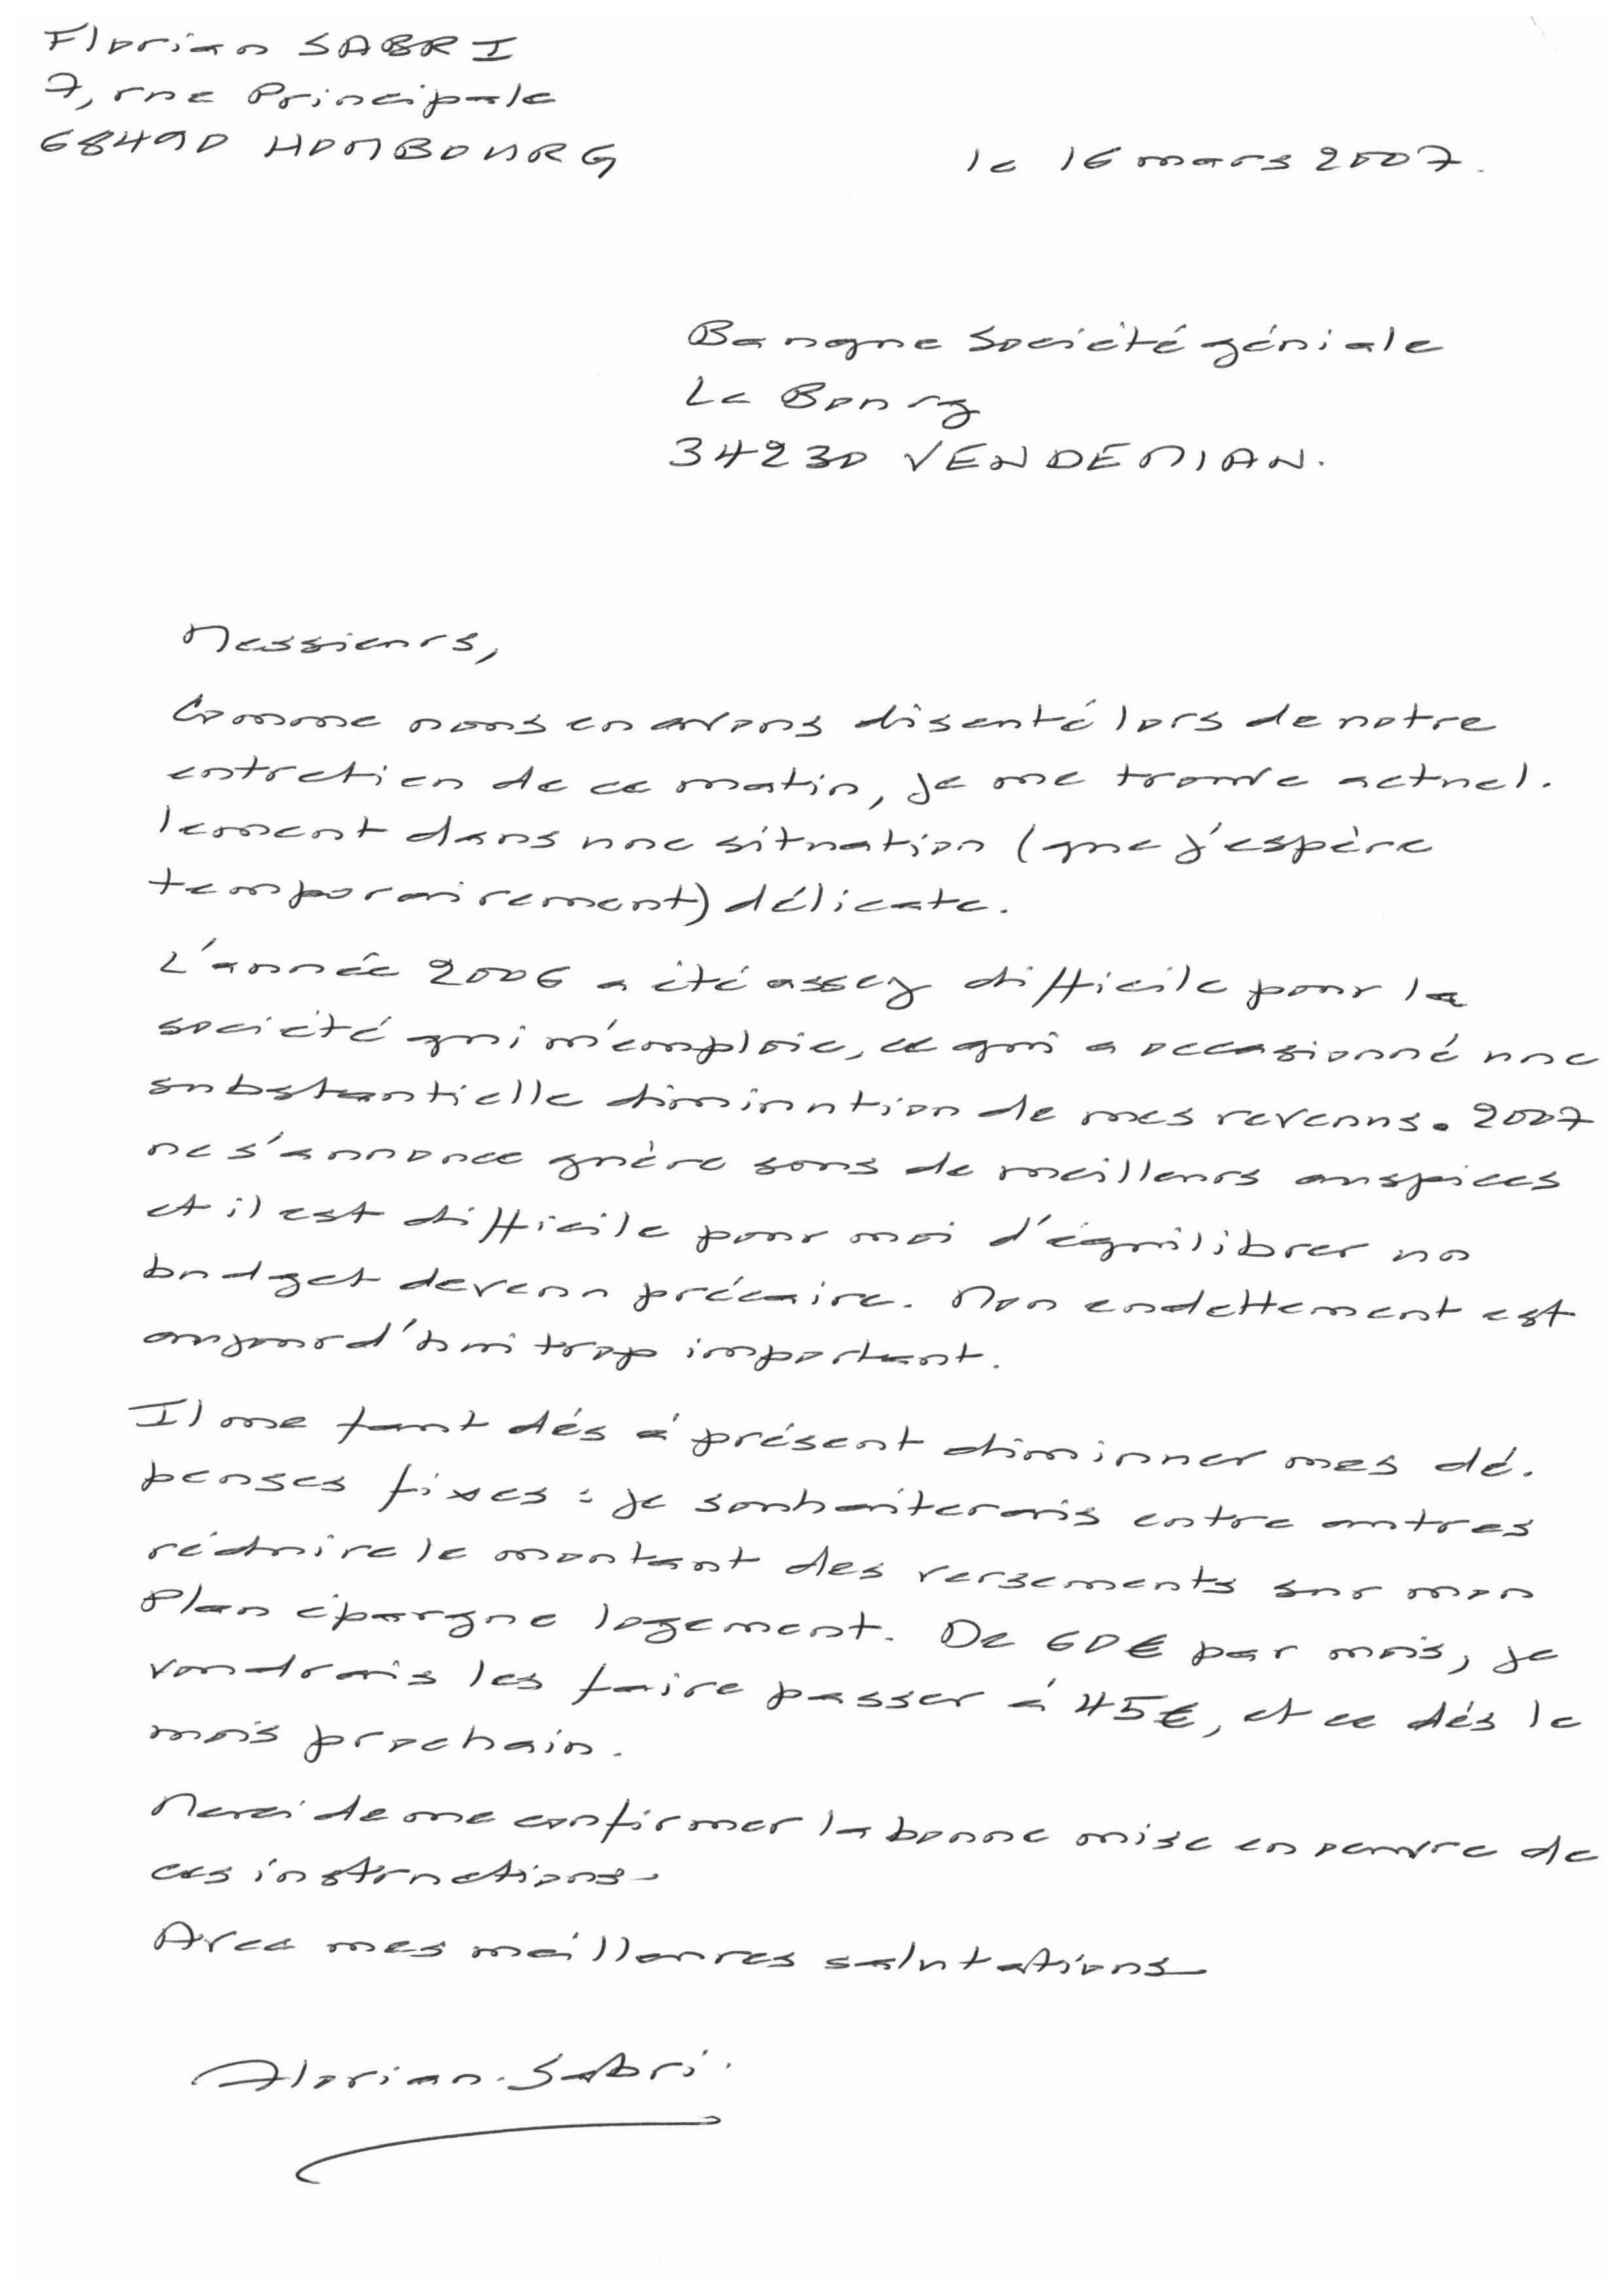 Florian SABRI
7, rue Principale
68490 HOMBOURG
le 16 mars 2007.
Banque Société géniale
Le Bourg
34230 VENDEMIAN.
Messieurs,
Comme nous en avons discuté lors de notre
entretien de ce matin, je me trouve actuel-
lement dans une situation (que j'espère
temporairement) délicate.
L'année 2006 a été assez difficile pour la
société qui m'emploie, ce qui a occasionné une
substantielle diminution de mes revenus. 2007
ne s'annonce guère sous de meilleurs auspices
et il est difficile pour moi d'équilibrer un
budget devenu précaire. Mon endettement est
aujourd'hui trop important.
Il me faut dés á présent diminuer mes dé-
penses fixes : je souhaiterais entre autres
réduire le montant des versements sur mon
Plan épargne logement. De 60€ par mois, je
voudrais les faire passer á 45€, et ce dés le
mois prochain.
Merci de me confirmer la bonne mise en oeuvre de
ces instructions.
Avec mes meilleures salutations
Florian Sabri.